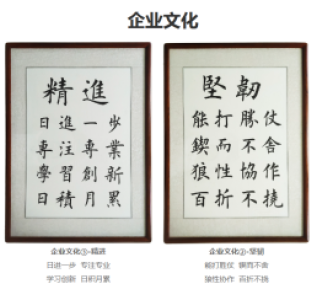 企业文化
精進
日進一步
專注專業
學習創新
日積月累
堅韌
能打勝仗
鍥而不舍
狼性協作
百折不撓
企业文化①-精进
日进一步 专注专业
学习创新 日积月累
企业文化②-坚韧
能打胜仗 锲而不舍
狼性协作 百折不挠